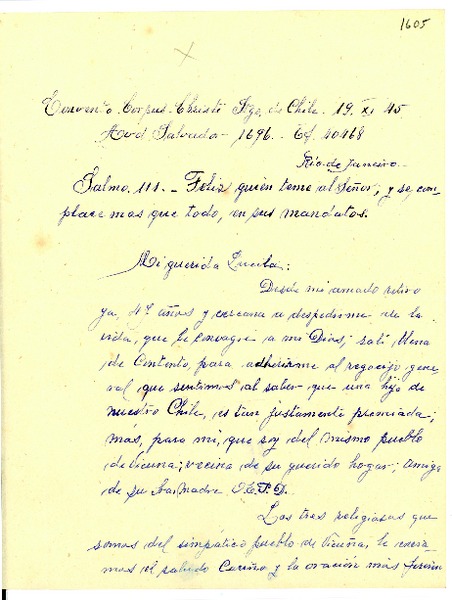 1605
Convento Corpus Christi Stgo. de Chile. 19. XI 45
Avd Salvador 1696. Tf 40468
Río de Janeiro
Salmo. 111. - Feliz quien teme al Señor, y se com-
place mas que todo, en sus mandatos.
Mi querida Lucila:
Desde mi amado retiro
ya, 47 años y cercana a despedirme de la
vida, que le consagre a mi Dios; salí, llena
de Contento, para adherirme al regocijo gene-
ral que sentimos al saber que una hija de
nuestro Chile, es tan justamente premiada;
más, para mí, que soy del mismo pueblo
de Vicuna; vecina de su querido hogar; Amiga
de su Sra Madre Q.E.P.D.
Las tres religiosas que
somos del simpático pueblo de Vicuña, le envia-
mos el saludo Cariño y la oración más